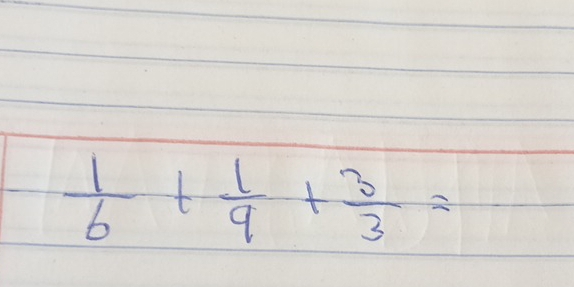 1/6 + 1/9 + 3/3 =